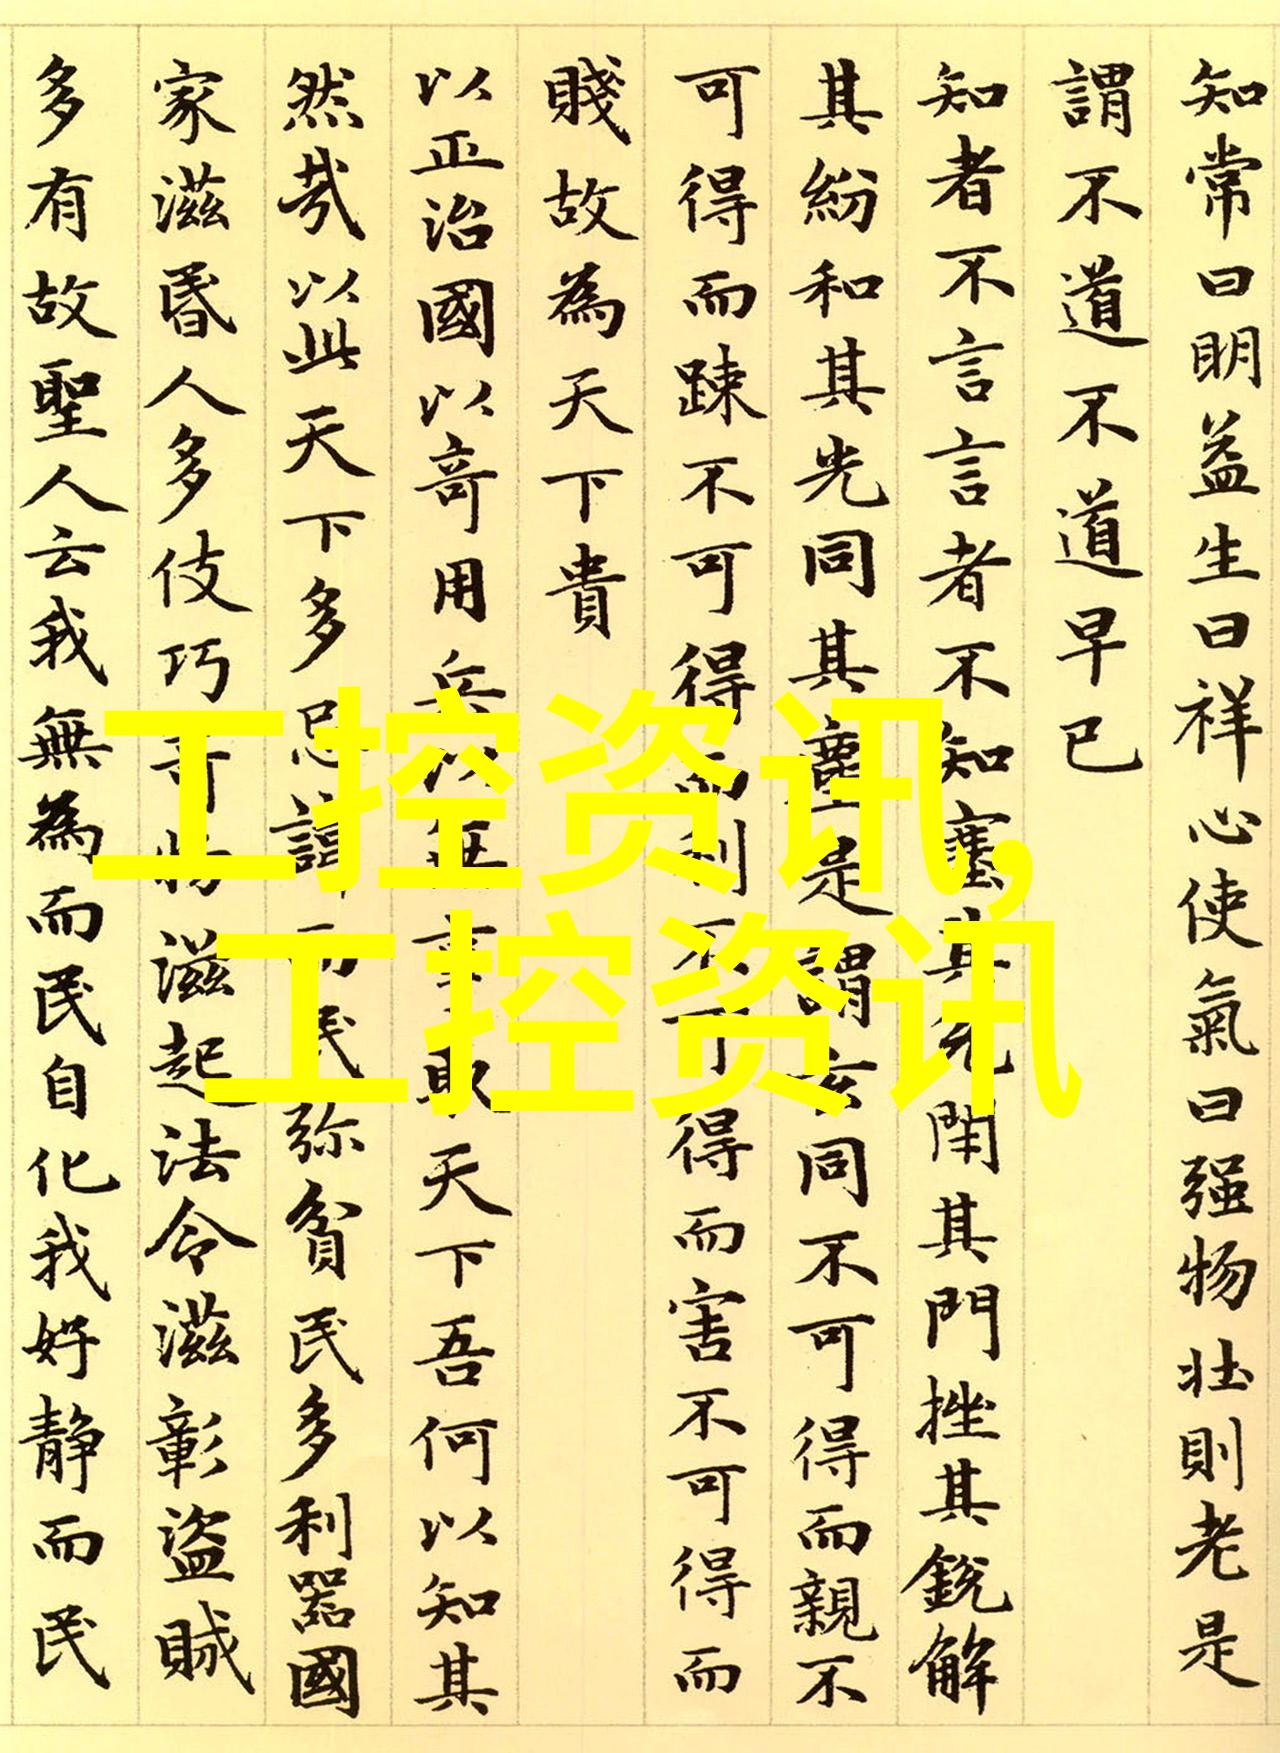 知常曰明益生曰祥心使氣曰强物壯則老是
謂不道不道早已
知者不言言者不知塞其兌閉其門挫其銳解
其紛和其光同其塵是謂玄同不可得而親不
可得而踈不可得而利不可得而害不可得而
賤故為天下貴
以正治國以奇用兵以無事取天下吾何以知其
然哉以此天下多忌諱而民弥貧民多利器國
家滋昏人多伎巧奇物滋起法令滋彰盜賊
多有故聖人云我無為而民自化我好静而民
工控资讯,
工控资讯